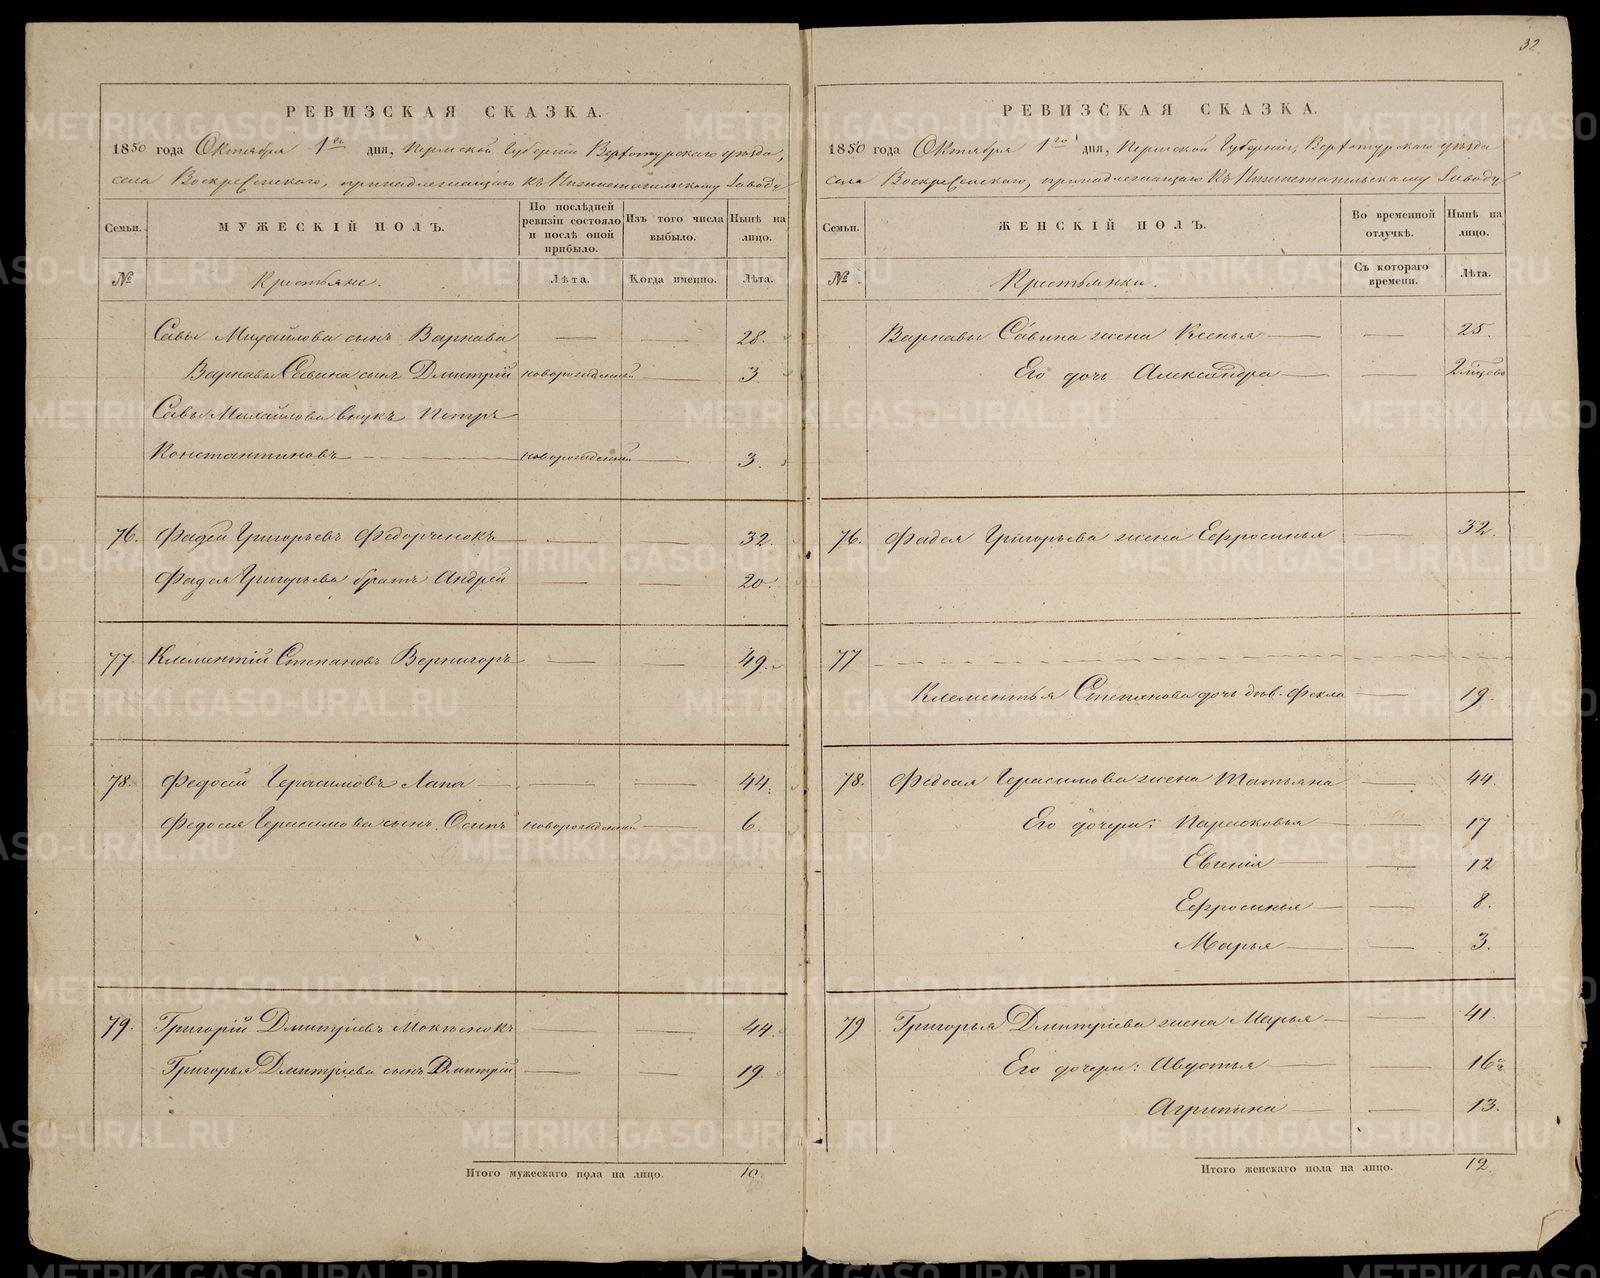 32
РЕВИЗСКАЯ СКАЗКА.
1850 года Октября 1го дня, Пермской Губерніи Верхотурскаго уѣзда,
села Воскресенскаго, принадлежащаго къ Нижнетагильскому Заводу
Семьи.
МУЖЕСКІЙ ПОЛЪ.
По послѣдней ревизіи состояло и послѣ оной прибыло.
Изъ того числа выбыло.
Нынѣ на лицо.
№
Крестьяне.
Лѣта.
Когда именно.
Лѣта.
Савы Михайлова сынъ Варнава — — 28.
Варнавы Савина сынъ Дмитрій новорожденный — 3
Савы Михайлова внукъ Петръ
Константиновъ — новорожденный — 3.
76. Фадей Григорьевъ Федорченокъ — — 32.
Фадея Григорьева братъ Андрей — — 20.
77. Клементій Степановъ Вернигоръ — — 49.
78. Федосій Герасимовъ Лапа — — 44.
Федосея Герасимова сынъ Осипъ новорожденный — 6.
79. Григорій Дмитріевъ Мокѣенокъ — — 44.
Григорья Дмитріева сынъ Дмитрій — — 19.
Итого мужескаго пола на лицо. 10.
РЕВИЗСКАЯ СКАЗКА.
1850 года Октября 1го дня, Пермской Губерніи, Верхотурскаго уѣзда
села Воскресенскаго, принадлежащаго къ Нижнетагильскому Заводу
Семьи.
ЖЕНСКІЙ ПОЛЪ.
Во временной отлучкѣ.
Нынѣ на лицо.
№
Крестьянки.
Съ котораго времени.
Лѣта.
Варнавы Савина жена Ксенья — — 25.
Его дочь Александра — — 2
76. Фадея Григорьева жена Ефросинья — 32.
77
Клементья Степанова дочь дѣв. Фекла — 19.
78. Федосея Герасимова жена Татьяна — 44.
Его дочери: Парасковья — — 17
Евгенія — — 12
Ефросинья — — 8.
Марья — — 3.
79 Григорья Дмитріева жена Марья — — 41.
Его дочери: Авдотья — — 16
Агрипина — — 13.
Итого женскаго пола на лицо. 12.
METRIKI.GASO-URAL.RU